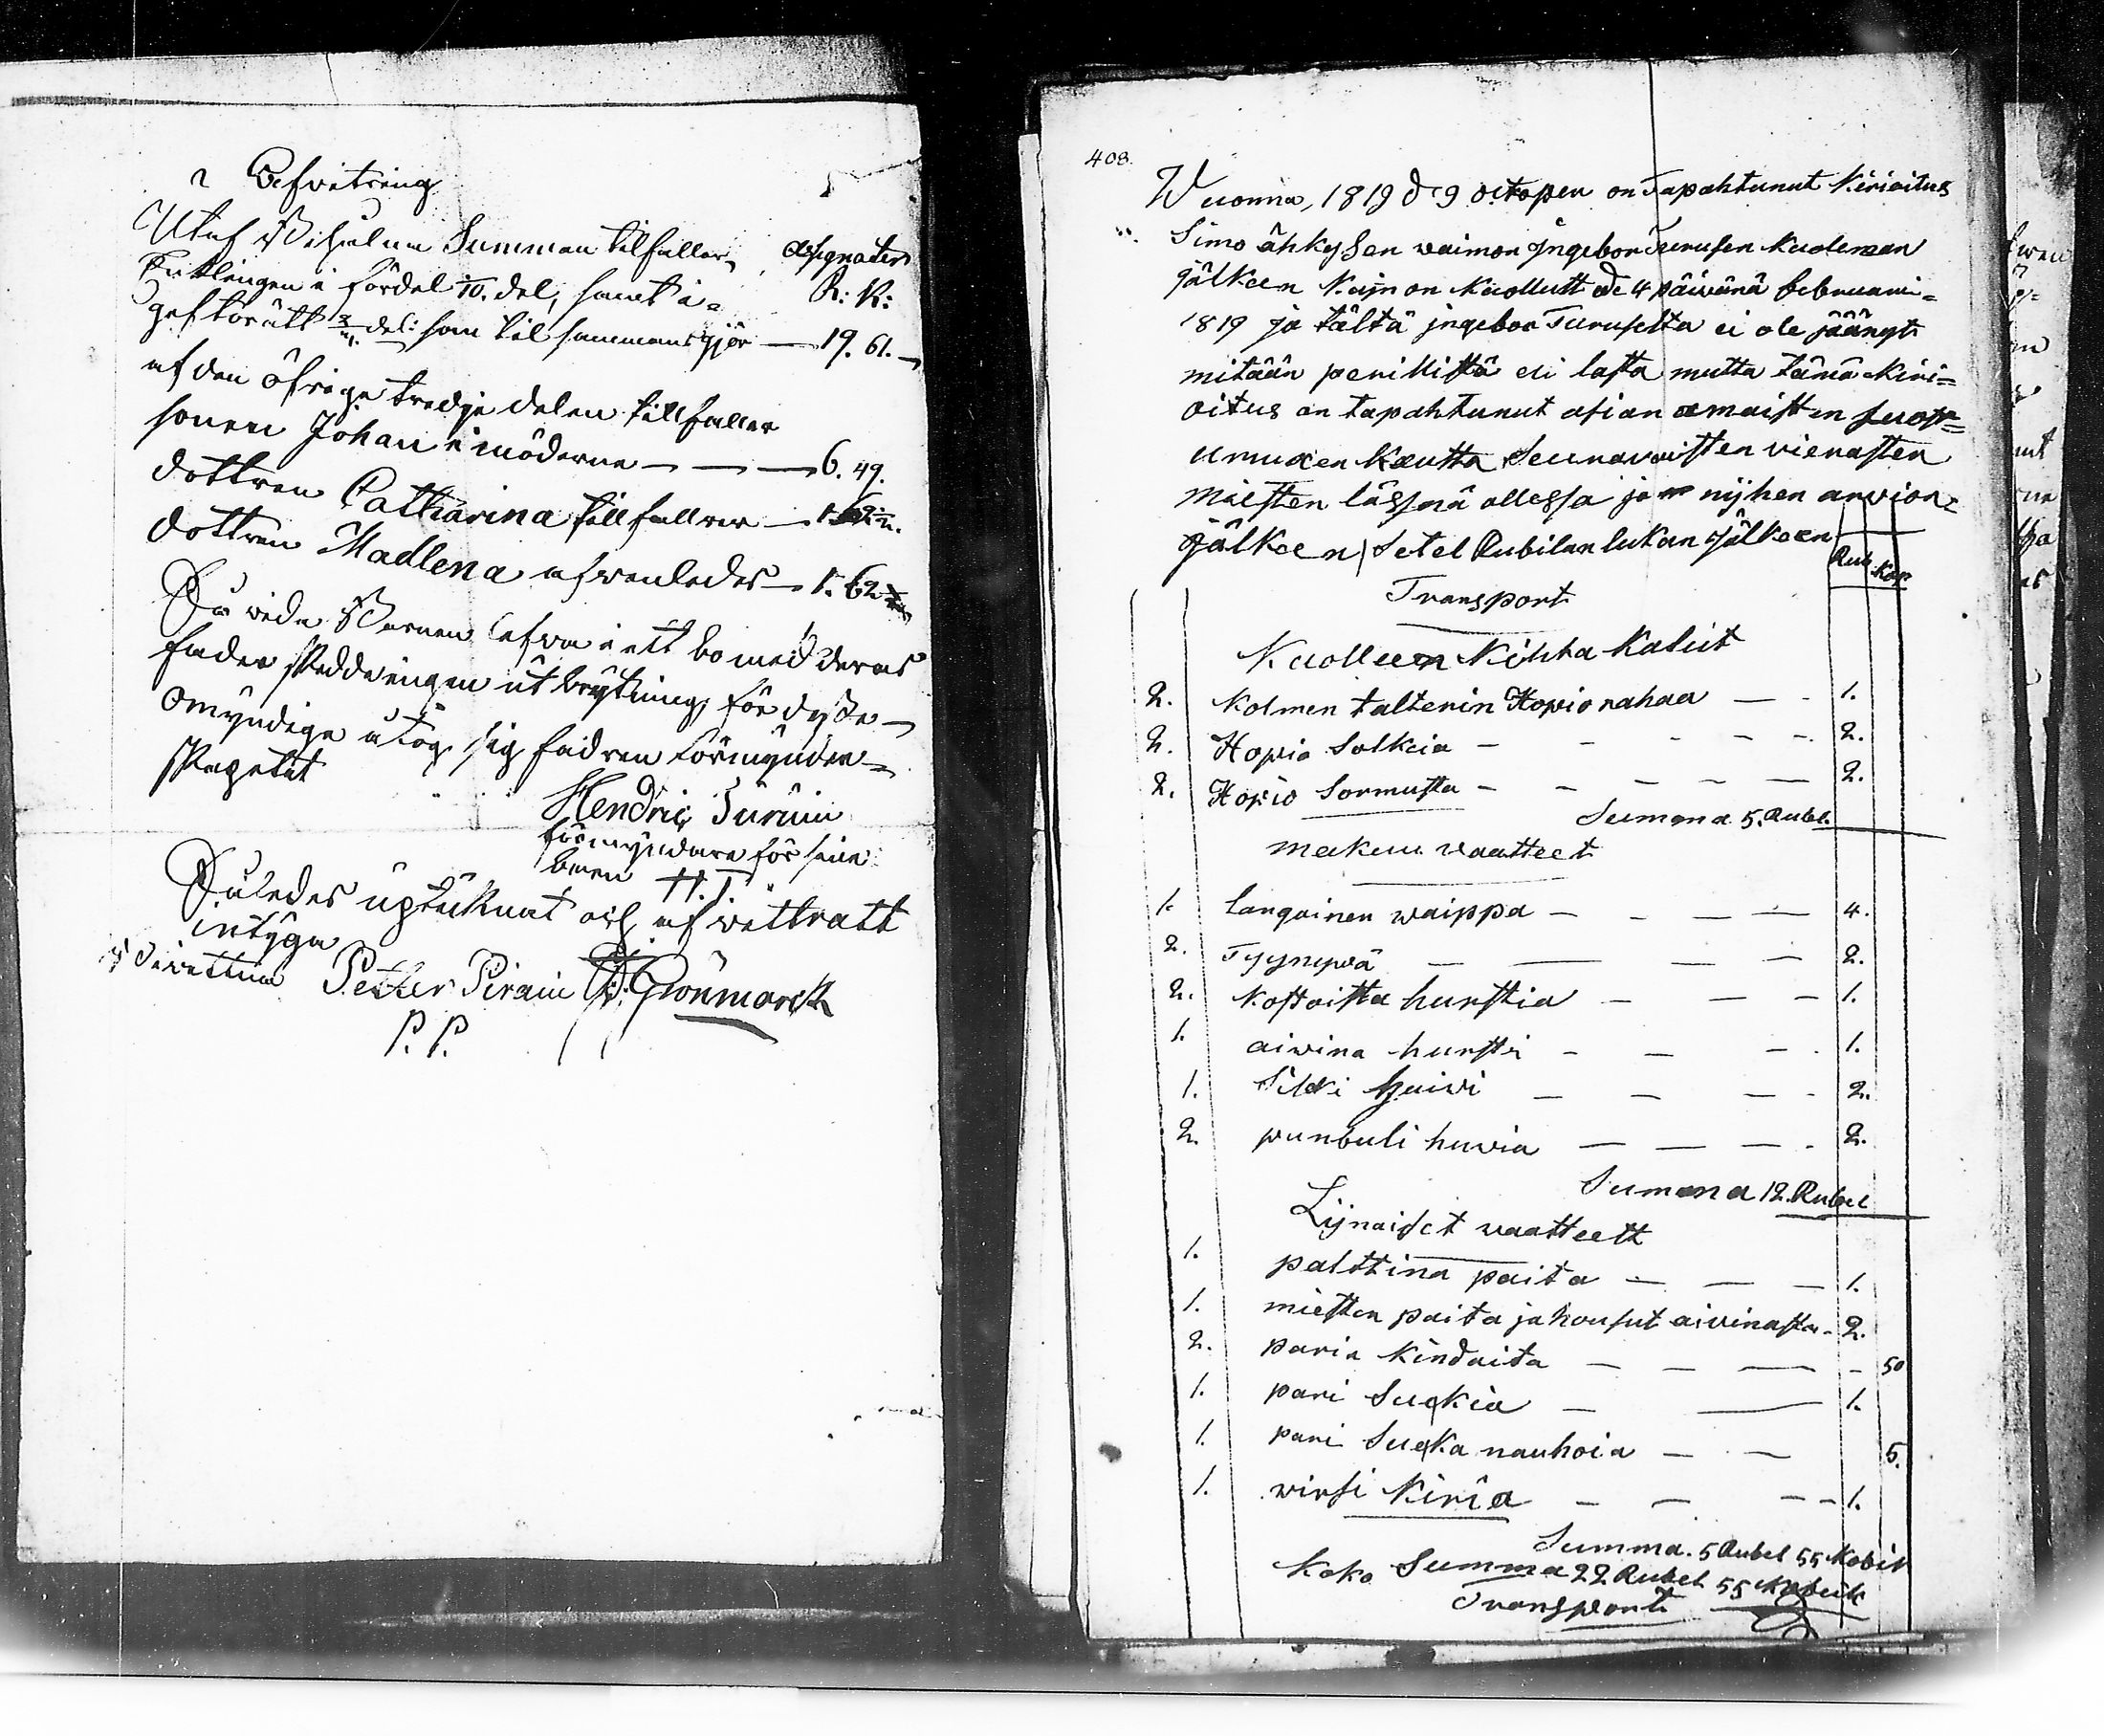 Afwitring
Utaf Behålna Summan tilfaller Assignater
Enklingen i fördel 1/10. del, samt i= R: K:
giftorätt 2/3 del: som til sammans gjör — 19. 61.
af den öfrige tredje delen tillfaller
sonen Johan i möderne — — — 6. 49.
dottren Catharina tillfaller —
dottren Madlena afwenledes —
Då rede Barnen lefwa i ett bo med deras
fader skedde ingen utbrytning, för dessa
omyndiga åtog sig fadren förmyndar=
skapetet
Hendric Turuin
förmyndare för sine
barn H.T.
Således uptecknat och afwittratt
intyga
Petter Pirain Grönmarck
P. P.
408.
Wuonna, 1819 d 9 octoper on Tapahtunut Kirioitus
Simo ähkysen waimon Jngebor Turusen Kuoleman
jälkeen Kujn on Kuollutt de 4 päiwänä februari=
1819 ja tältä jngebor Turuselta ei ole jäänyt
mitään perillistä eli lasta mutta tämä Kiri=
oitus on tapahtunut asian omaisten suost=
umuxen Kautta Seurawaisten vierasten
miesten lässnä ollessa ja nijhen arwion=
jälkeen Setel Rubilan lukan jälkeen
Rub. Kop
Transport
Kuolleen Kihla Kalut
2. Kolmen talterin Hopio rahaa — - 1.
2. Hopia Solkeia - - - - - 2.
2. Hopio Sormusta - - - - — 2.
Summa 5. Rubel.
makuu waatteet
1. langainen waippa — - — — 4.
2. Tyynyjä — — — — 2.
2. Kostoista hurstia - — — 1.
1. aiwina hursti - — - . 1.
1. Silki huiwi — — — . 2.
2. punbuli huwia — — — . 2.
Summa 12. Rubel
Lijnaiset waatteett
1. palttina paita — — — 1.
1. miesten paita ja housut aivinasta - 2.
2. paria Kindaita — — — - 50
1. pari Sukia — — 1.
1. pari Suka nauhoia — — 5.
1. wirsi Kiria - — - - 1.
Summa. 5 Rubel 55 Kobik
Koko Summa 22 Rubel 55 Kobeik
Transport